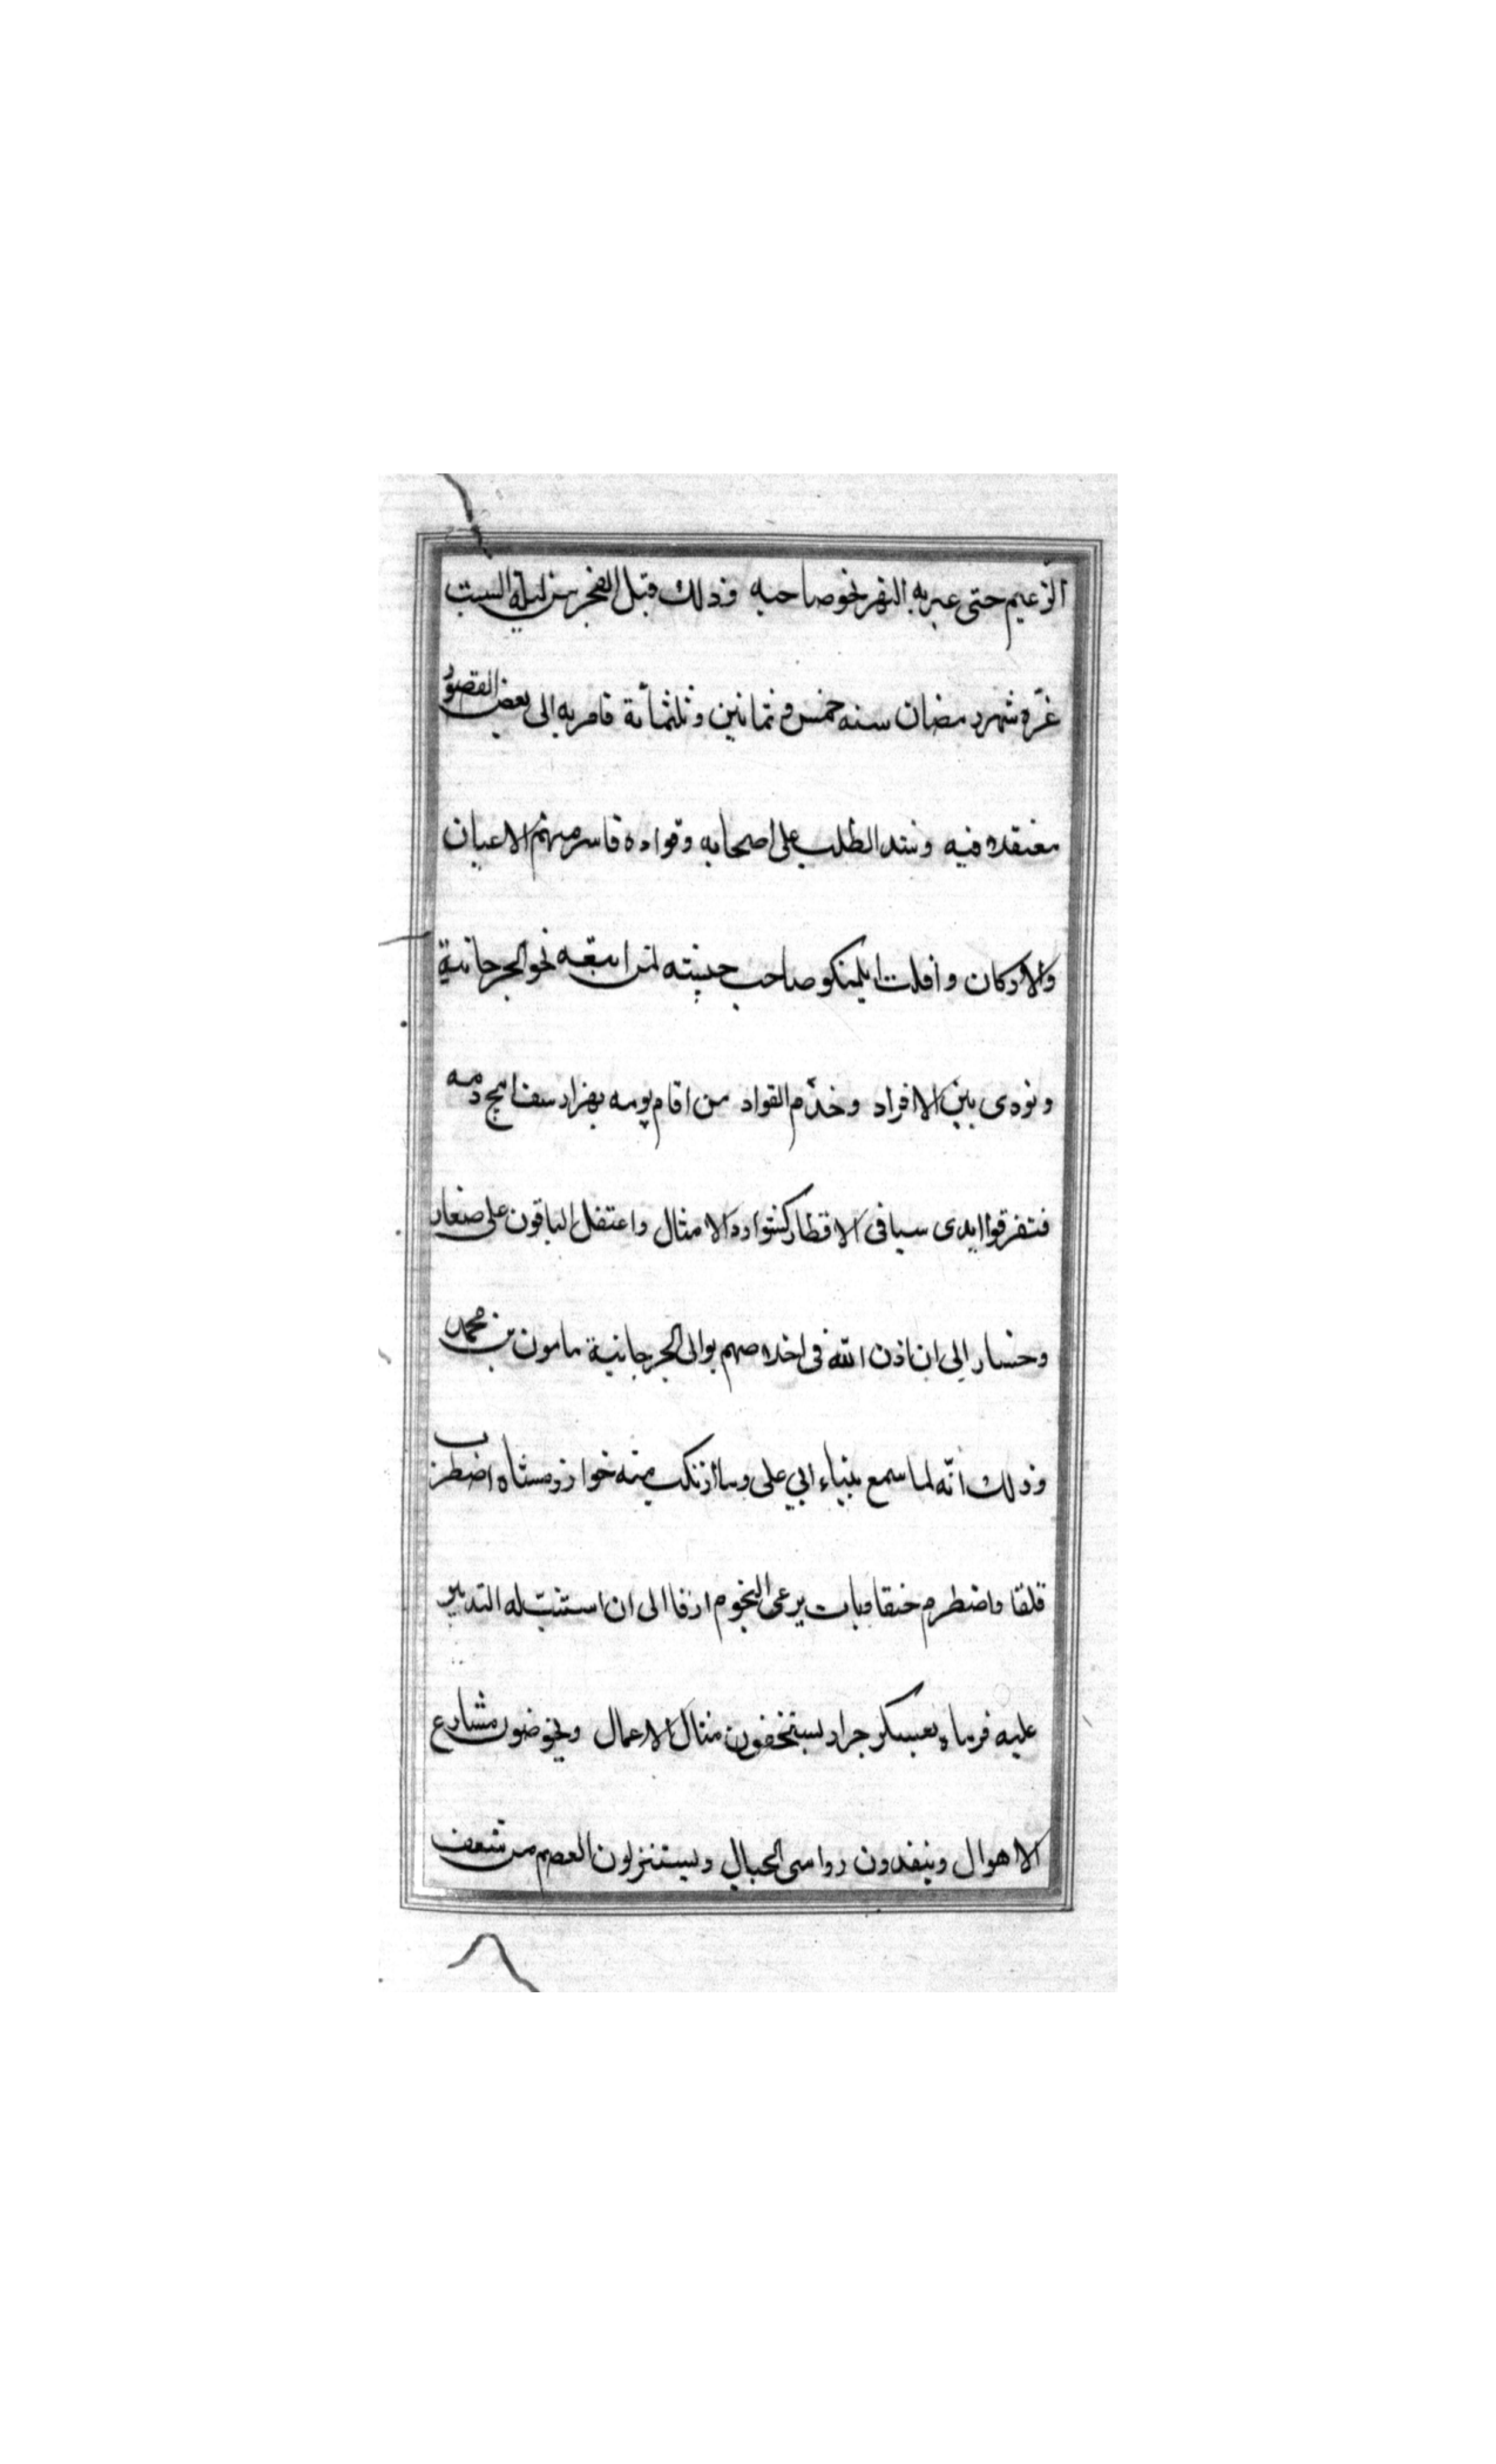 الزعيم حتى عبر به النهر نحو صاحبه وذلك قبل الفجر من ليلة السبت
غرّة شهر رمضان سنه خمس و ثمانين وثلثمائة فامر به الى بعض القصور
معتقلا فيه وشد الطلب على اصحابه وقواده فاسر منهم الاعيان
والاركان وافلت ايلمنكو صاحب جيشه لمن اتبعه نحو الجرجانية
ونودى بين الافراد وخدّم القواد من اقام يومه بهزارسف ابيح دمه
فتفرقوا ايدى سبا فى الاقطار كشوارد الامثال واعتقل الباقون على صغار
وخسار الى ان اذن الله فى اخلاصهم بوالى الجرجانية مامون بن محمد
وذلك انّه لما سمع بنباء ابي على وما ارتكب منه خوارزمشاه اضطرب
قلقا واضطرم حنقا وبات يرعى النجوم ارقا الى ان استتبّ له التدبير
عليه فرماه بعسكر جرار يستخفون مثال الاعمال ويخوضون مشارع
الاهوال وينقدون رواسى الجبال ويستنزلون العصم من شعف